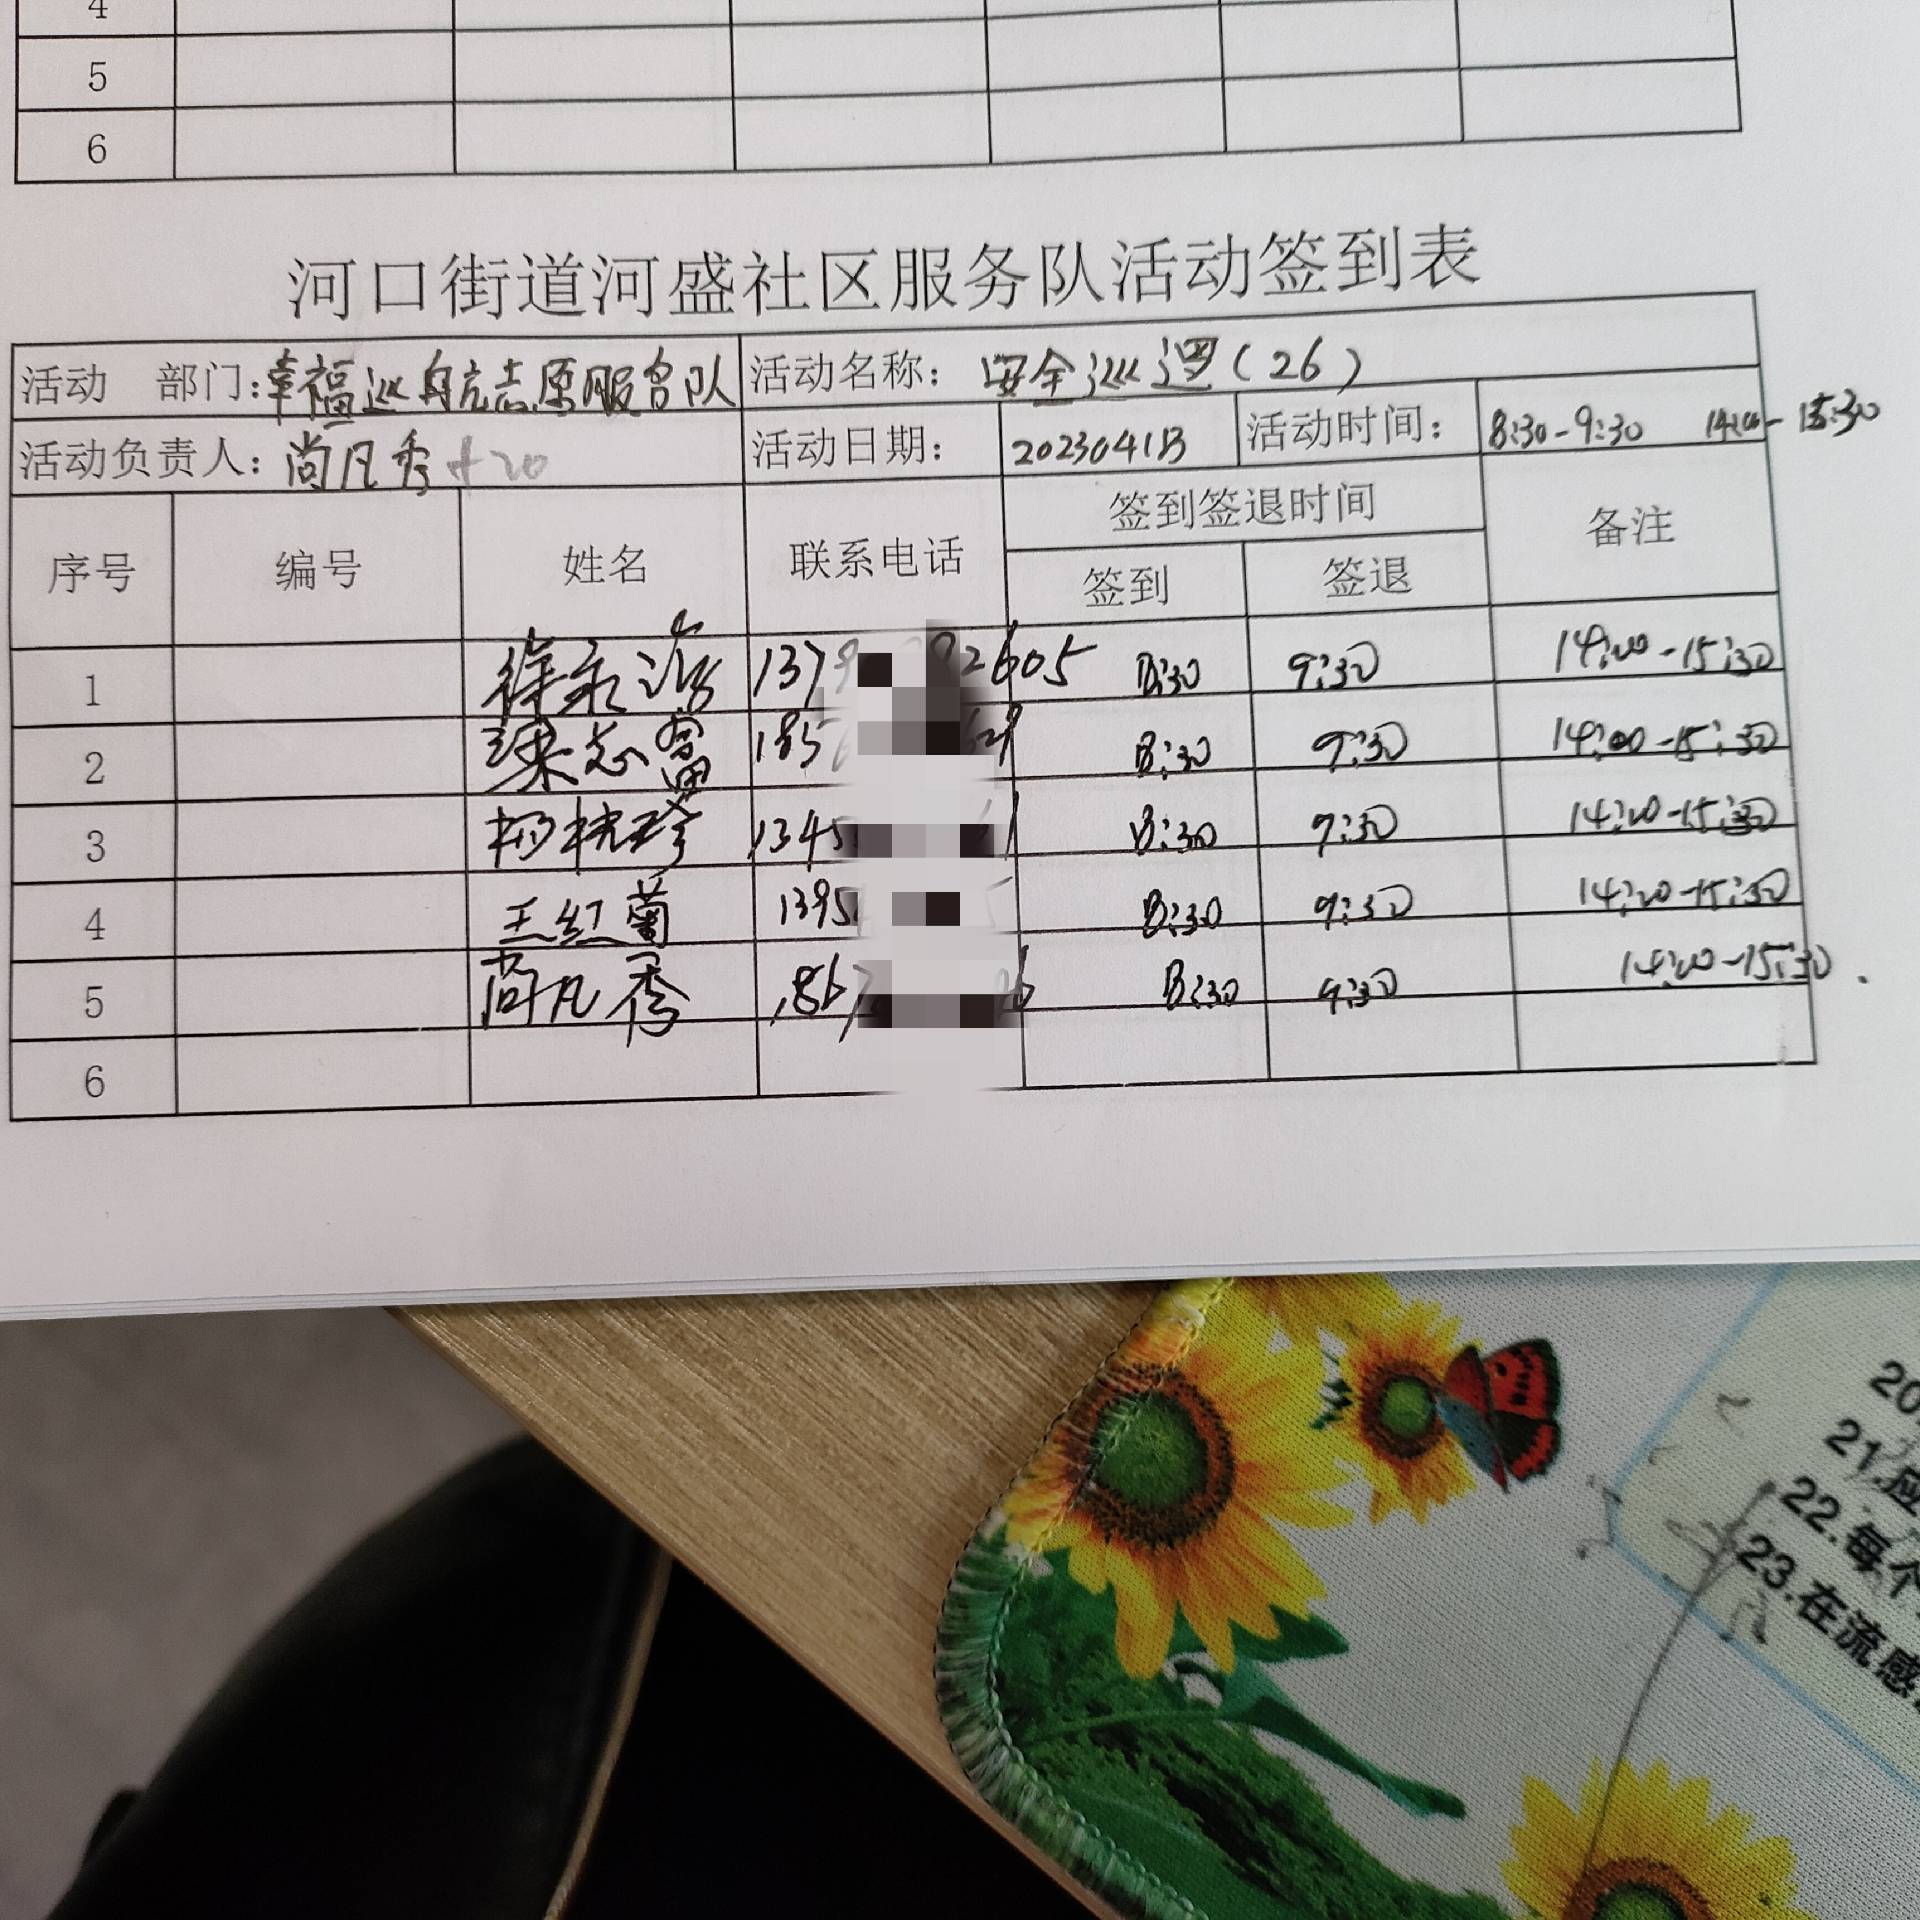 4
5
6
河口街道河盛社区服务队活动签到表
活动 部门:幸福巡自航志愿服务队 活动名称: 安全巡逻(26)
活动负责人: 尚凡秀 +20 活动日期: 20230418 活动时间: 8:30-9:30 14:00-15:30
序号 编号 姓名 联系电话 签到签退时间 备注
签到 签退
1 徐永 137 2605 8:30 9:30 14:00-15:30
2 梁志富 185 69 8:30 9:30 14:00-15:30
3 杨桃珍 1345 1 8:30 9:30 14:00-15:30
4 王红菊 1395 8:30 9:30 14:00-15:30
5 尚凡秀 1867 6 8:30 9:30 14:00-15:30
6
20
21.应
22.每个
23.在流感